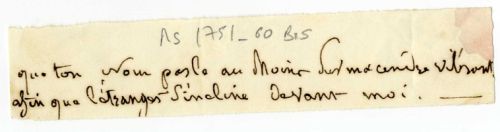 AS 1751-60 Bis
que ton Nom parle au Moins sur ma cendre vibrant
afin que l'étranger s'incline devant moi. —